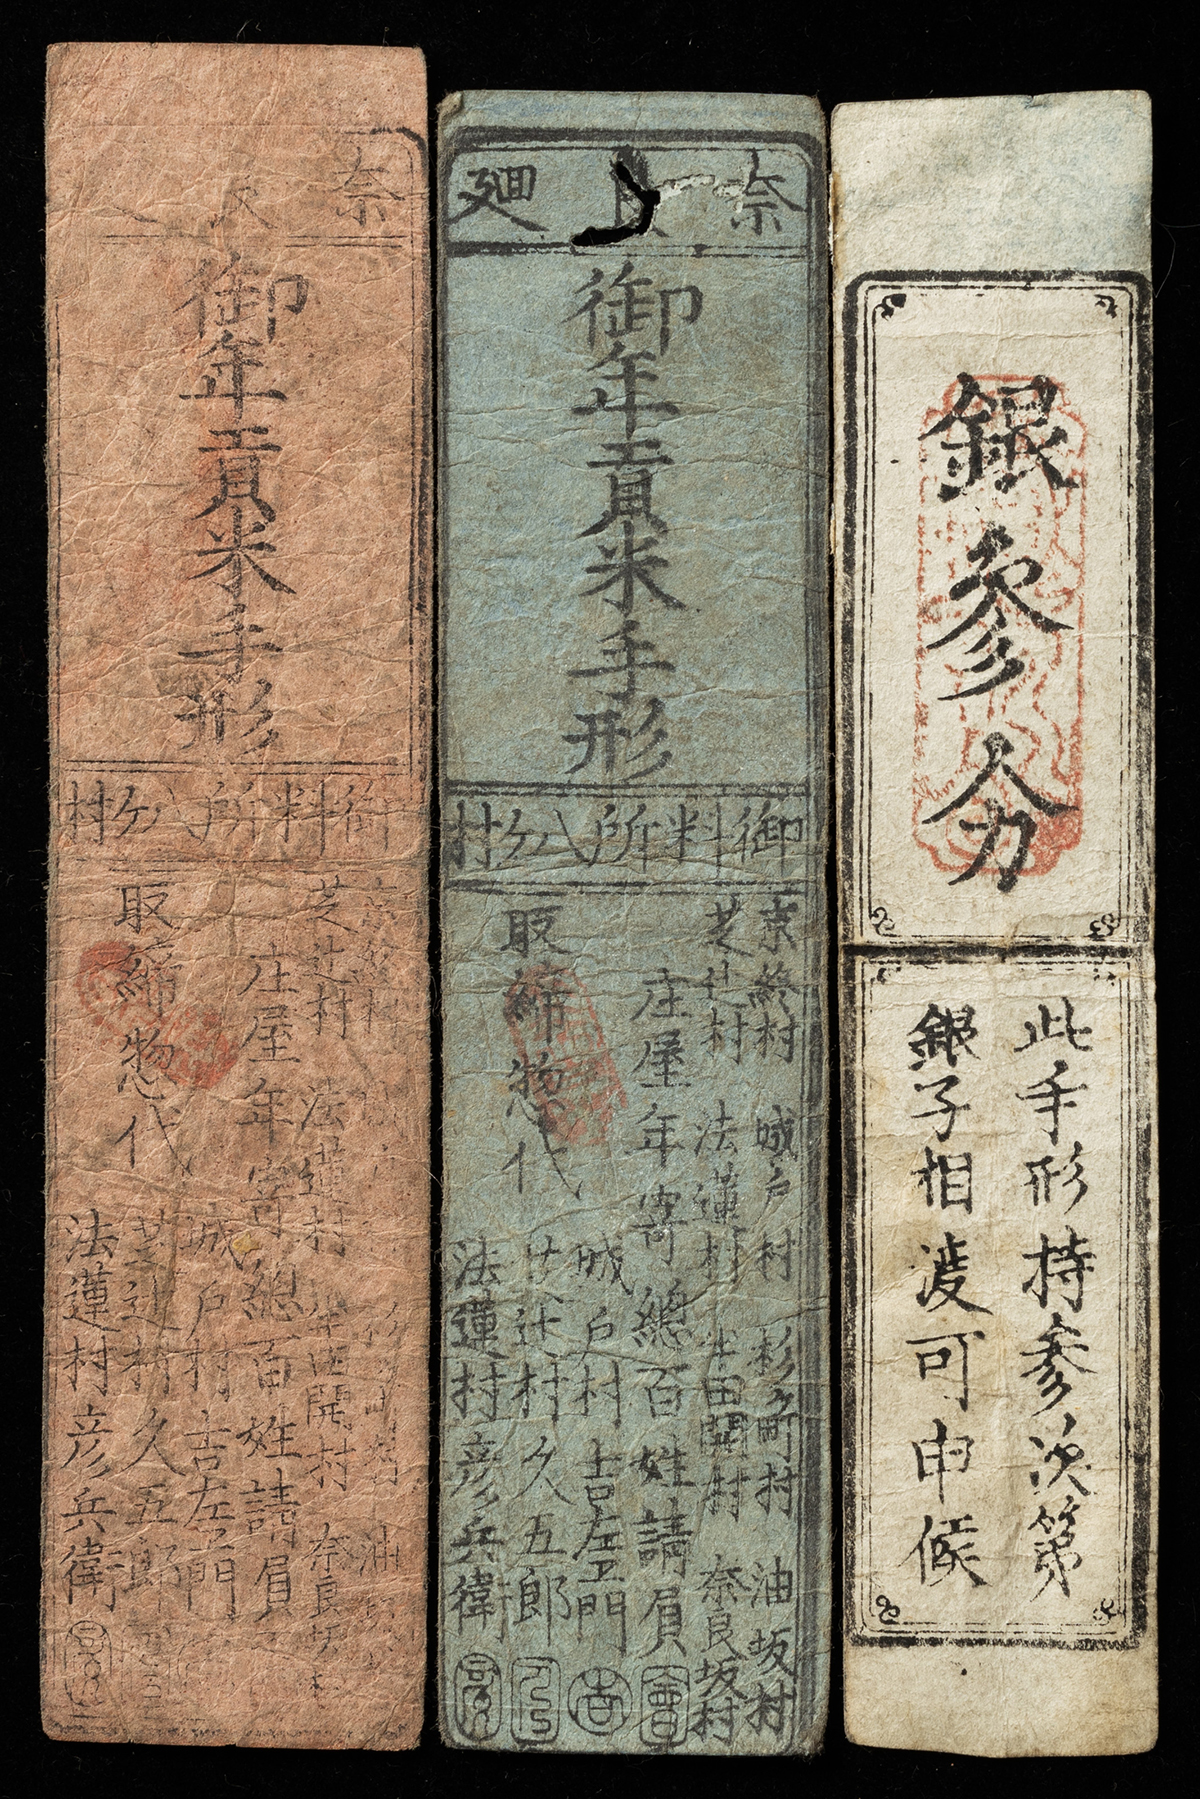 奈良
御年貢米手形
御料所八ケ村
芝辻村 法蓮村 半田開村 奈良坂村
庄屋年寄總百姓請負
取締惣代
城戸村吉左衛門
芝辻村久五郎
法蓮村彦兵衛
奈良廻
御年貢米手形
御料所八ケ村
京終村 城戸村 杉ケ町村 油坂村
芝辻村 法蓮村 半田開村 奈良坂村
庄屋年寄總百姓請負
取締惣代
城戸村吉左衛門
芝辻村久五郎
法蓮村彦兵衛
銀參分
此手形持参次第
銀子相渡可申候